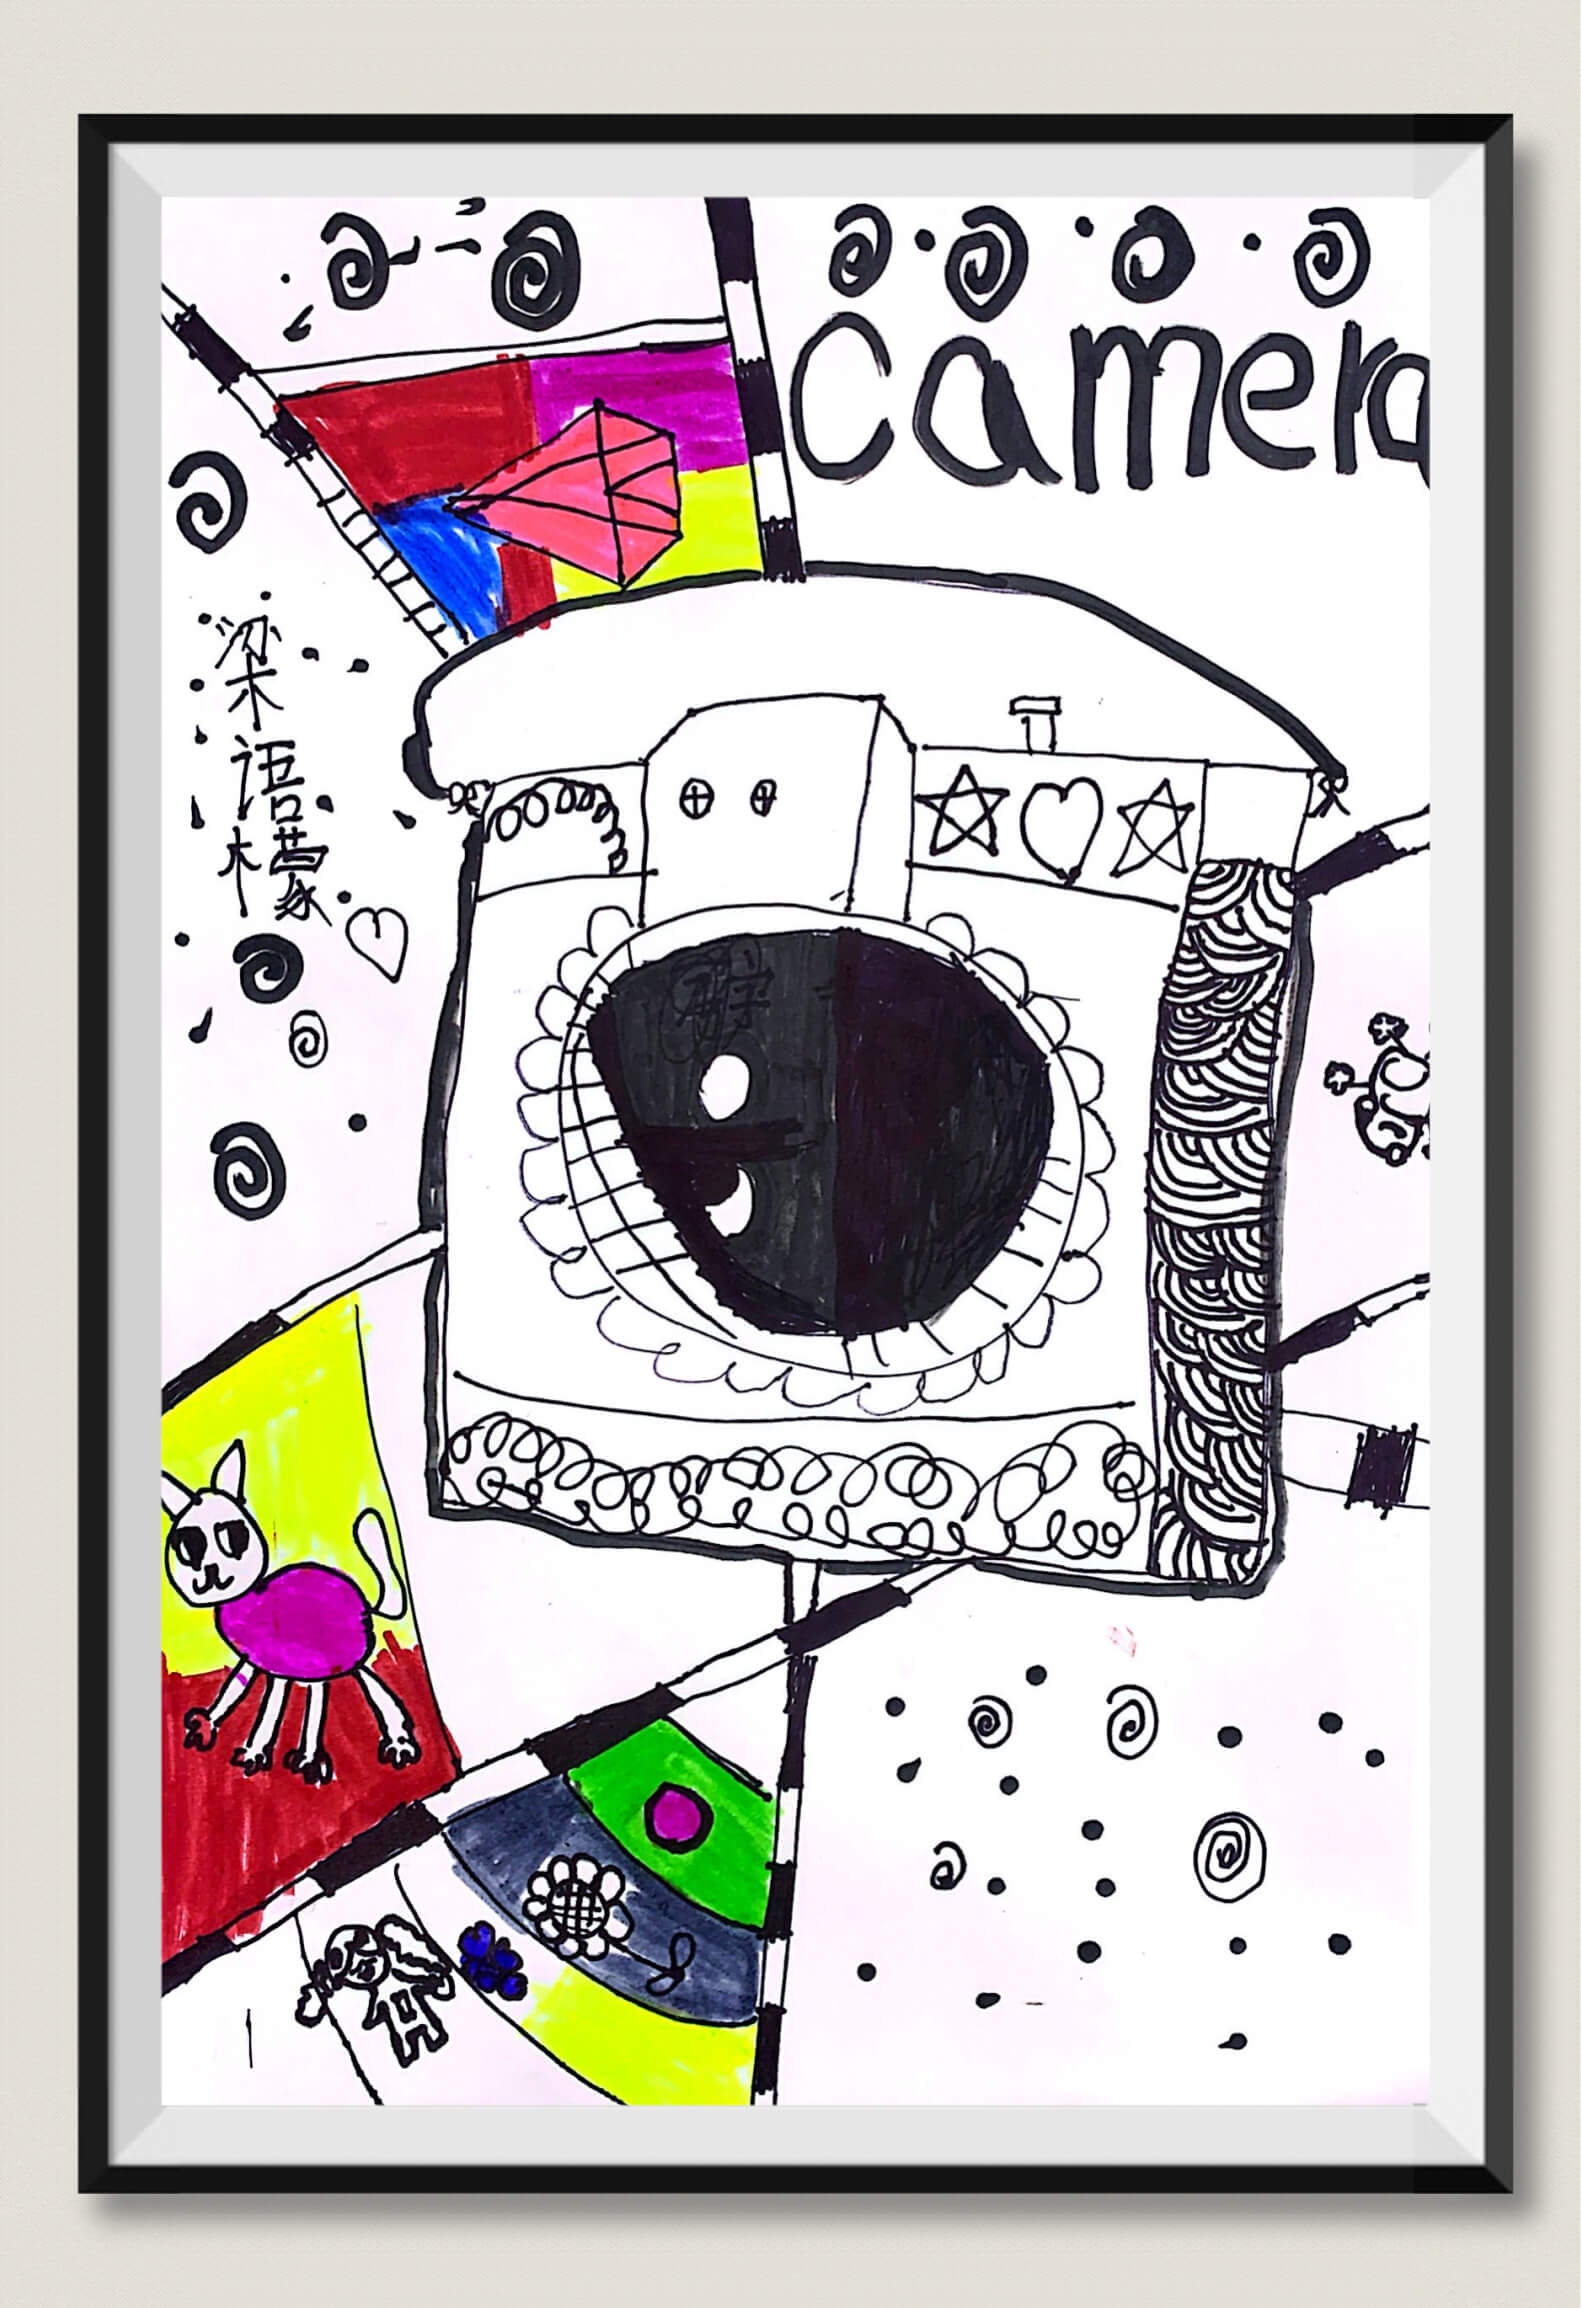 Camera
梁语檬